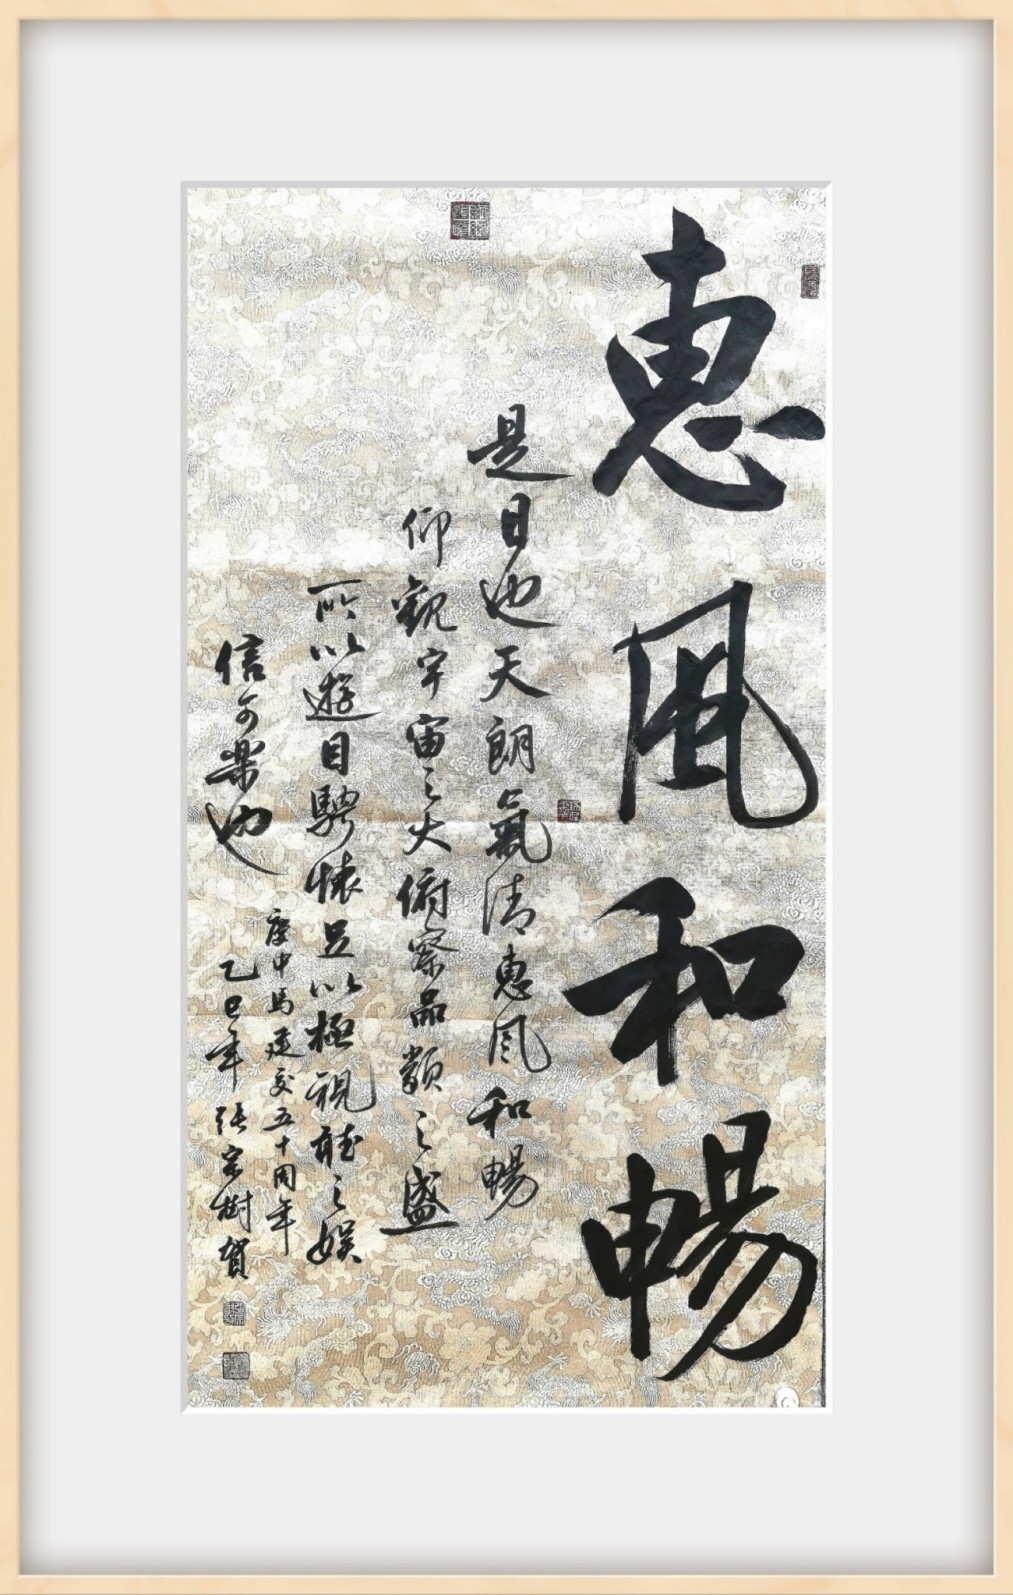 惠風和暢
是日也天朗氣清惠風和暢
仰觀宇宙之大俯察品類之盛
所以遊目騁懷足以極視聽之娛
信可樂也
慶中馬建交五十周年
乙巳年張宗樹賀